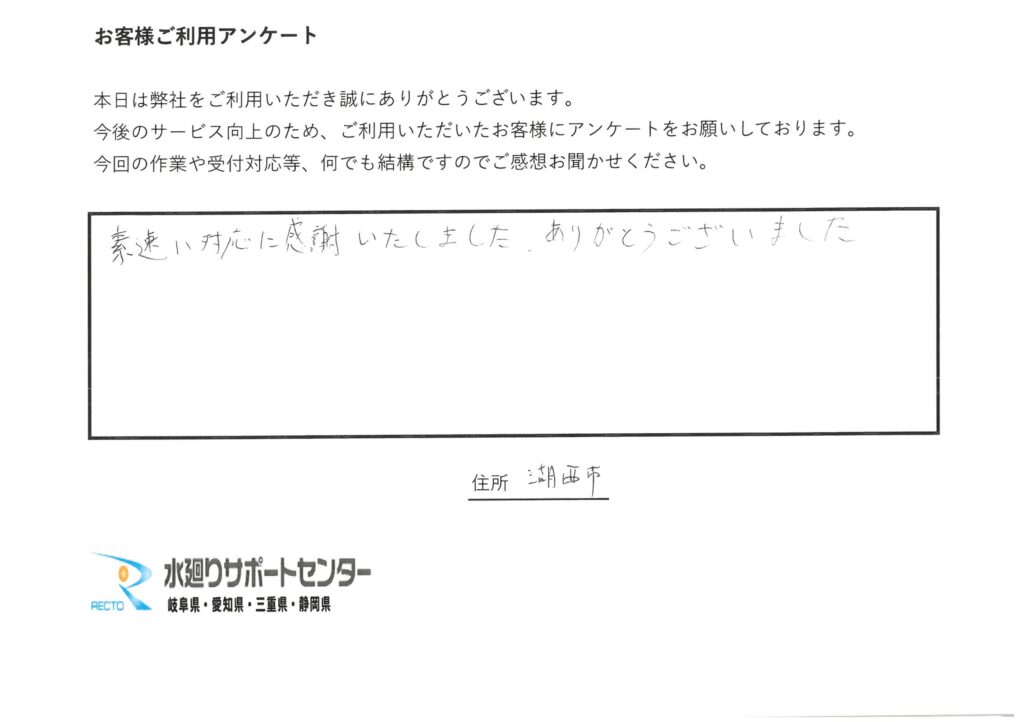 お客様ご利用アンケート
本日は弊社をご利用いただき誠にありがとうございます。
今後のサービス向上のため、ご利用いただいたお客様にアンケートをお願いしております。
今回の作業や受付対応等、何でも結構ですのでご感想お聞かせください。
素速い対応に感謝いたしました。ありがとうございました
住所 湖西市
RECTO
水廻りサポートセンター
岐阜県・愛知県・三重県・静岡県